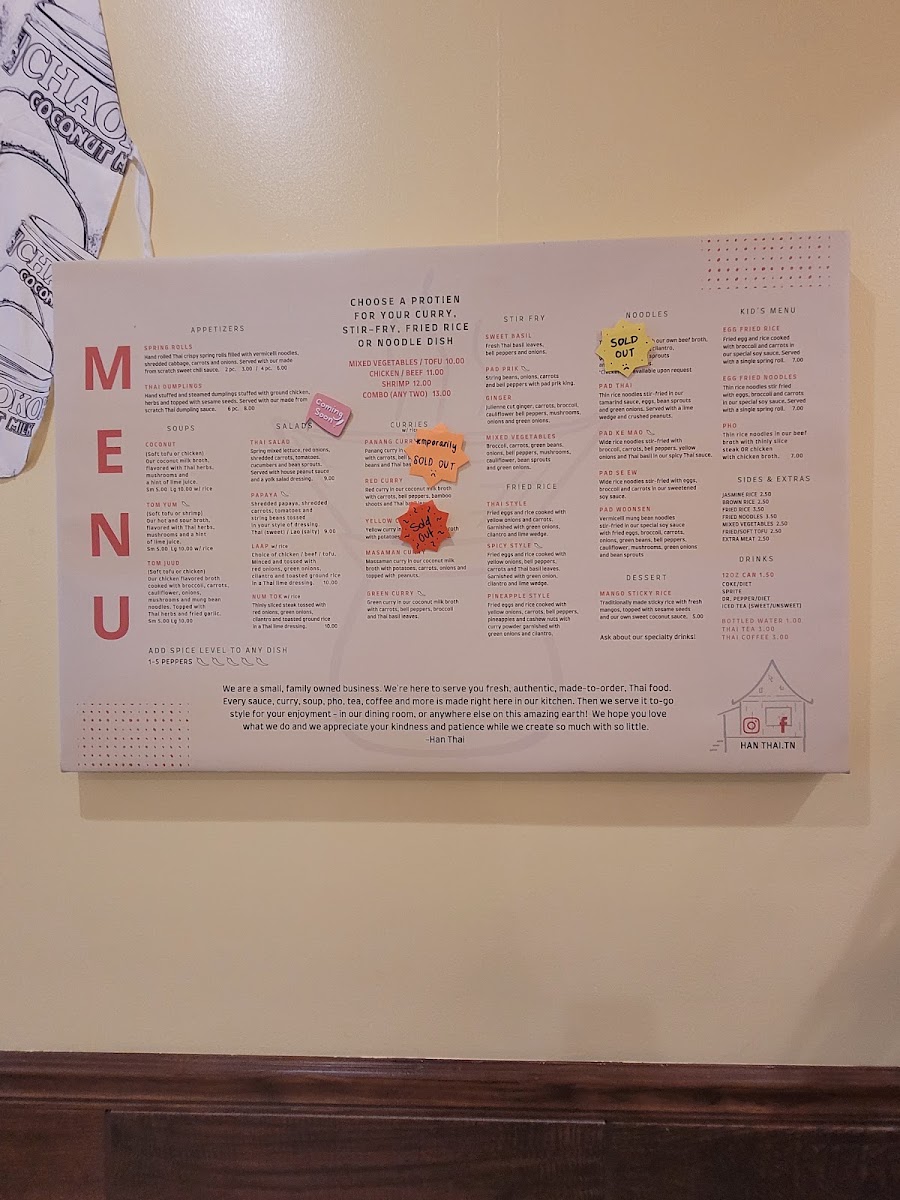 CHAO
COCONUT M
CHA
COCON
OKO
MILK
MENU
APPETIZERS
SPRING ROLLS
Hand rolled Thai crispy spring rolls filled with vermicelli noodles,
shredded cabbage, carrots and onions. Served with our made
from scratch sweet chili sauce. 2 pc. 3.00 / 4 pc. 5.00
THAI DUMPLINGS
Hand stuffed and steamed dumplings stuffed with ground chicken,
herbs and topped with sesame seeds. Served with our made from
scratch Thai dumpling sauce. 6 pc. 8.00
Coming
Soon
SOUPS
COCONUT
(Soft tofu or chicken)
Our coconut milk broth,
flavored with Thai herbs,
mushrooms and
a hint of lime juice.
Sm 5.00 Lg 10.00 w/ rice
TOM YUM
(Soft tofu or shrimp)
Our hot and sour broth,
flavored with Thai herbs,
mushrooms and a hint
of lime juice.
Sm 5.00 Lg 10.00 w/ rice
TOM JUUD
(Soft tofu or chicken)
Our chicken flavored broth
cooked with broccoli, carrots,
cauliflower, onions,
mushrooms and mung bean
noodles. Topped with
Thai herbs and fried garlic.
Sm 5.00 Lg 10.00
ADD SPICE LEVEL TO ANY DISH
1-5 PEPPERS
SALADS
THAI SALAD
Spring mixed lettuce, red onions,
shredded carrots, tomatoes,
cucumbers and bean sprouts.
Served with house peanut sauce
and a yolk salad dressing. 9.00
PAPAYA
Shredded papaya, shredded
carrots, tomatoes and
string beans tossed
in your style of dressing.
Thai (sweet) / Lao (salty) 9.00
LAAP w/ rice
Choice of chicken / beef / tofu.
Minced and tossed with
red onions, green onions,
cilantro and toasted ground rice
in a Thai lime dressing. 10.00
NUM TOK w/ rice
Thinly sliced steak tossed with
red onions, green onions,
cilantro and toasted ground rice
in a Thai lime dressing. 10.00
CHOOSE A PROTIEN
FOR YOUR CURRY,
STIR-FRY, FRIED RICE
OR NOODLE DISH
MIXED VEGETABLES / TOFU 10.00
CHICKEN / BEEF 11.00
SHRIMP 12.00
COMBO (ANY TWO) 13.00
CURRIES
w/ rice
PANANG CURRY
Panang curry in
with carrots, bell
beans and Thai bas
emporarily
SOLD OUT
RED CURRY
Red curry in our coconut milk broth
with carrots, bell peppers, bamboo
shoots and Thai b
YELLOW
Yellow curry broth
with potatoes
Sold
Out
MASAMAN CU
Massaman curry in our coconut milk
broth with potatoes, carrots, onions and
topped with peanuts.
GREEN CURRY
Green curry in our coconut milk broth
with carrots, bell peppers, broccoli
and Thai basil leaves.
STIR FRY
SWEET BASIL
Fresh Thai basil leaves,
bell peppers and onions.
PAD PRIK
String beans, onions, carrots
and bell peppers with pad prik king.
GINGER
Julienne cut ginger, carrots, broccoli,
cauliflower bell peppers, mushrooms,
onions and green onions.
MIXED VEGETABLES
Broccoli, carrots, green beans,
onions, bell peppers, mushrooms,
cauliflower, bean sprouts
and green onions.
FRIED RICE
THAI STYLE
Fried eggs and rice cooked with
yellow onions and carrots.
Garnished with green onions,
cilantro and lime wedge.
SPICY STYLE
Fried eggs and rice cooked with
yellow onions, bell peppers,
carrots and Thai basil leaves.
Garnished with green onion,
cilantro and lime wedge.
PINEAPPLE STYLE
Fried eggs and rice cooked with
yellow onions, carrots, bell peppers,
pineapples and cashew nuts with
curry powder garnished with
green onions and cilantro.
NOODLES
our own beef broth,
cilantro,
sprouts
available upon request
SOLD
OUT
PAD THAI
Thin rice noodles stir-fried in our
tamarind sauce, eggs, bean sprouts
and green onions. Served with a lime
wedge and crushed peanuts.
PAD KE MAO
Wide rice noodles stir-fried with
broccoli, carrots, bell peppers, yellow
onions and Thai basil in our spicy Thai sauce.
PAD SE EW
Wide rice noodles stir-fried with eggs,
broccoli and carrots in our sweetened
soy sauce.
PAD WOONSEN
Vermicelli mung bean noodles
stir-fried in our special soy sauce
with fried eggs, broccoli, carrots,
onions, green beans, bell peppers,
cauliflower, mushrooms, green onions
and bean sprouts
DESSERT
MANGO STICKY RICE
Traditionally made sticky rice with fresh
mangos, topped with sesame seeds
and our own sweet coconut sauce. 5.00
Ask about our specialty drinks!
KID'S MENU
EGG FRIED RICE
Fried egg and rice cooked
with broccoli and carrots in
our special soy sauce. Served
with a single spring roll. 7.00
EGG FRIED NOODLES
Thin rice noodles stir fried
with eggs, broccoli and carrots
in our special soy sauce. Served
with a single spring roll. 7.00
PHO
Thin rice noodles in our beef
broth with thinly slice
steak OR chicken
with chicken broth. 7.00
SIDES & EXTRAS
JASMINE RICE 2.50
BROWN RICE 2.50
FRIED RICE 3.50
FRIED NOODLES 3.50
MIXED VEGETABLES 2.50
FRIED/SOFT TOFU 2.50
EXTRA MEAT 2.50
DRINKS
12OZ CAN 1.50
COKE/DIET
SPRITE
DR. PEPPER/DIET
ICED TEA (SWEET/UNSWEET)
BOTTLED WATER 1.00
THAI TEA 3.00
THAI COFFEE 3.00
We are a small, family owned business. We're here to serve you fresh, authentic, made-to-order, Thai food.
Every sauce, curry, soup, pho, tea, coffee and more is made right here in our kitchen. Then we serve it to-go
style for your enjoyment - in our dining room, or anywhere else on this amazing earth! We hope you love
what we do and we appreciate your kindness and patience while we create so much with so little.
-Han Thai
HAN THAI.TN